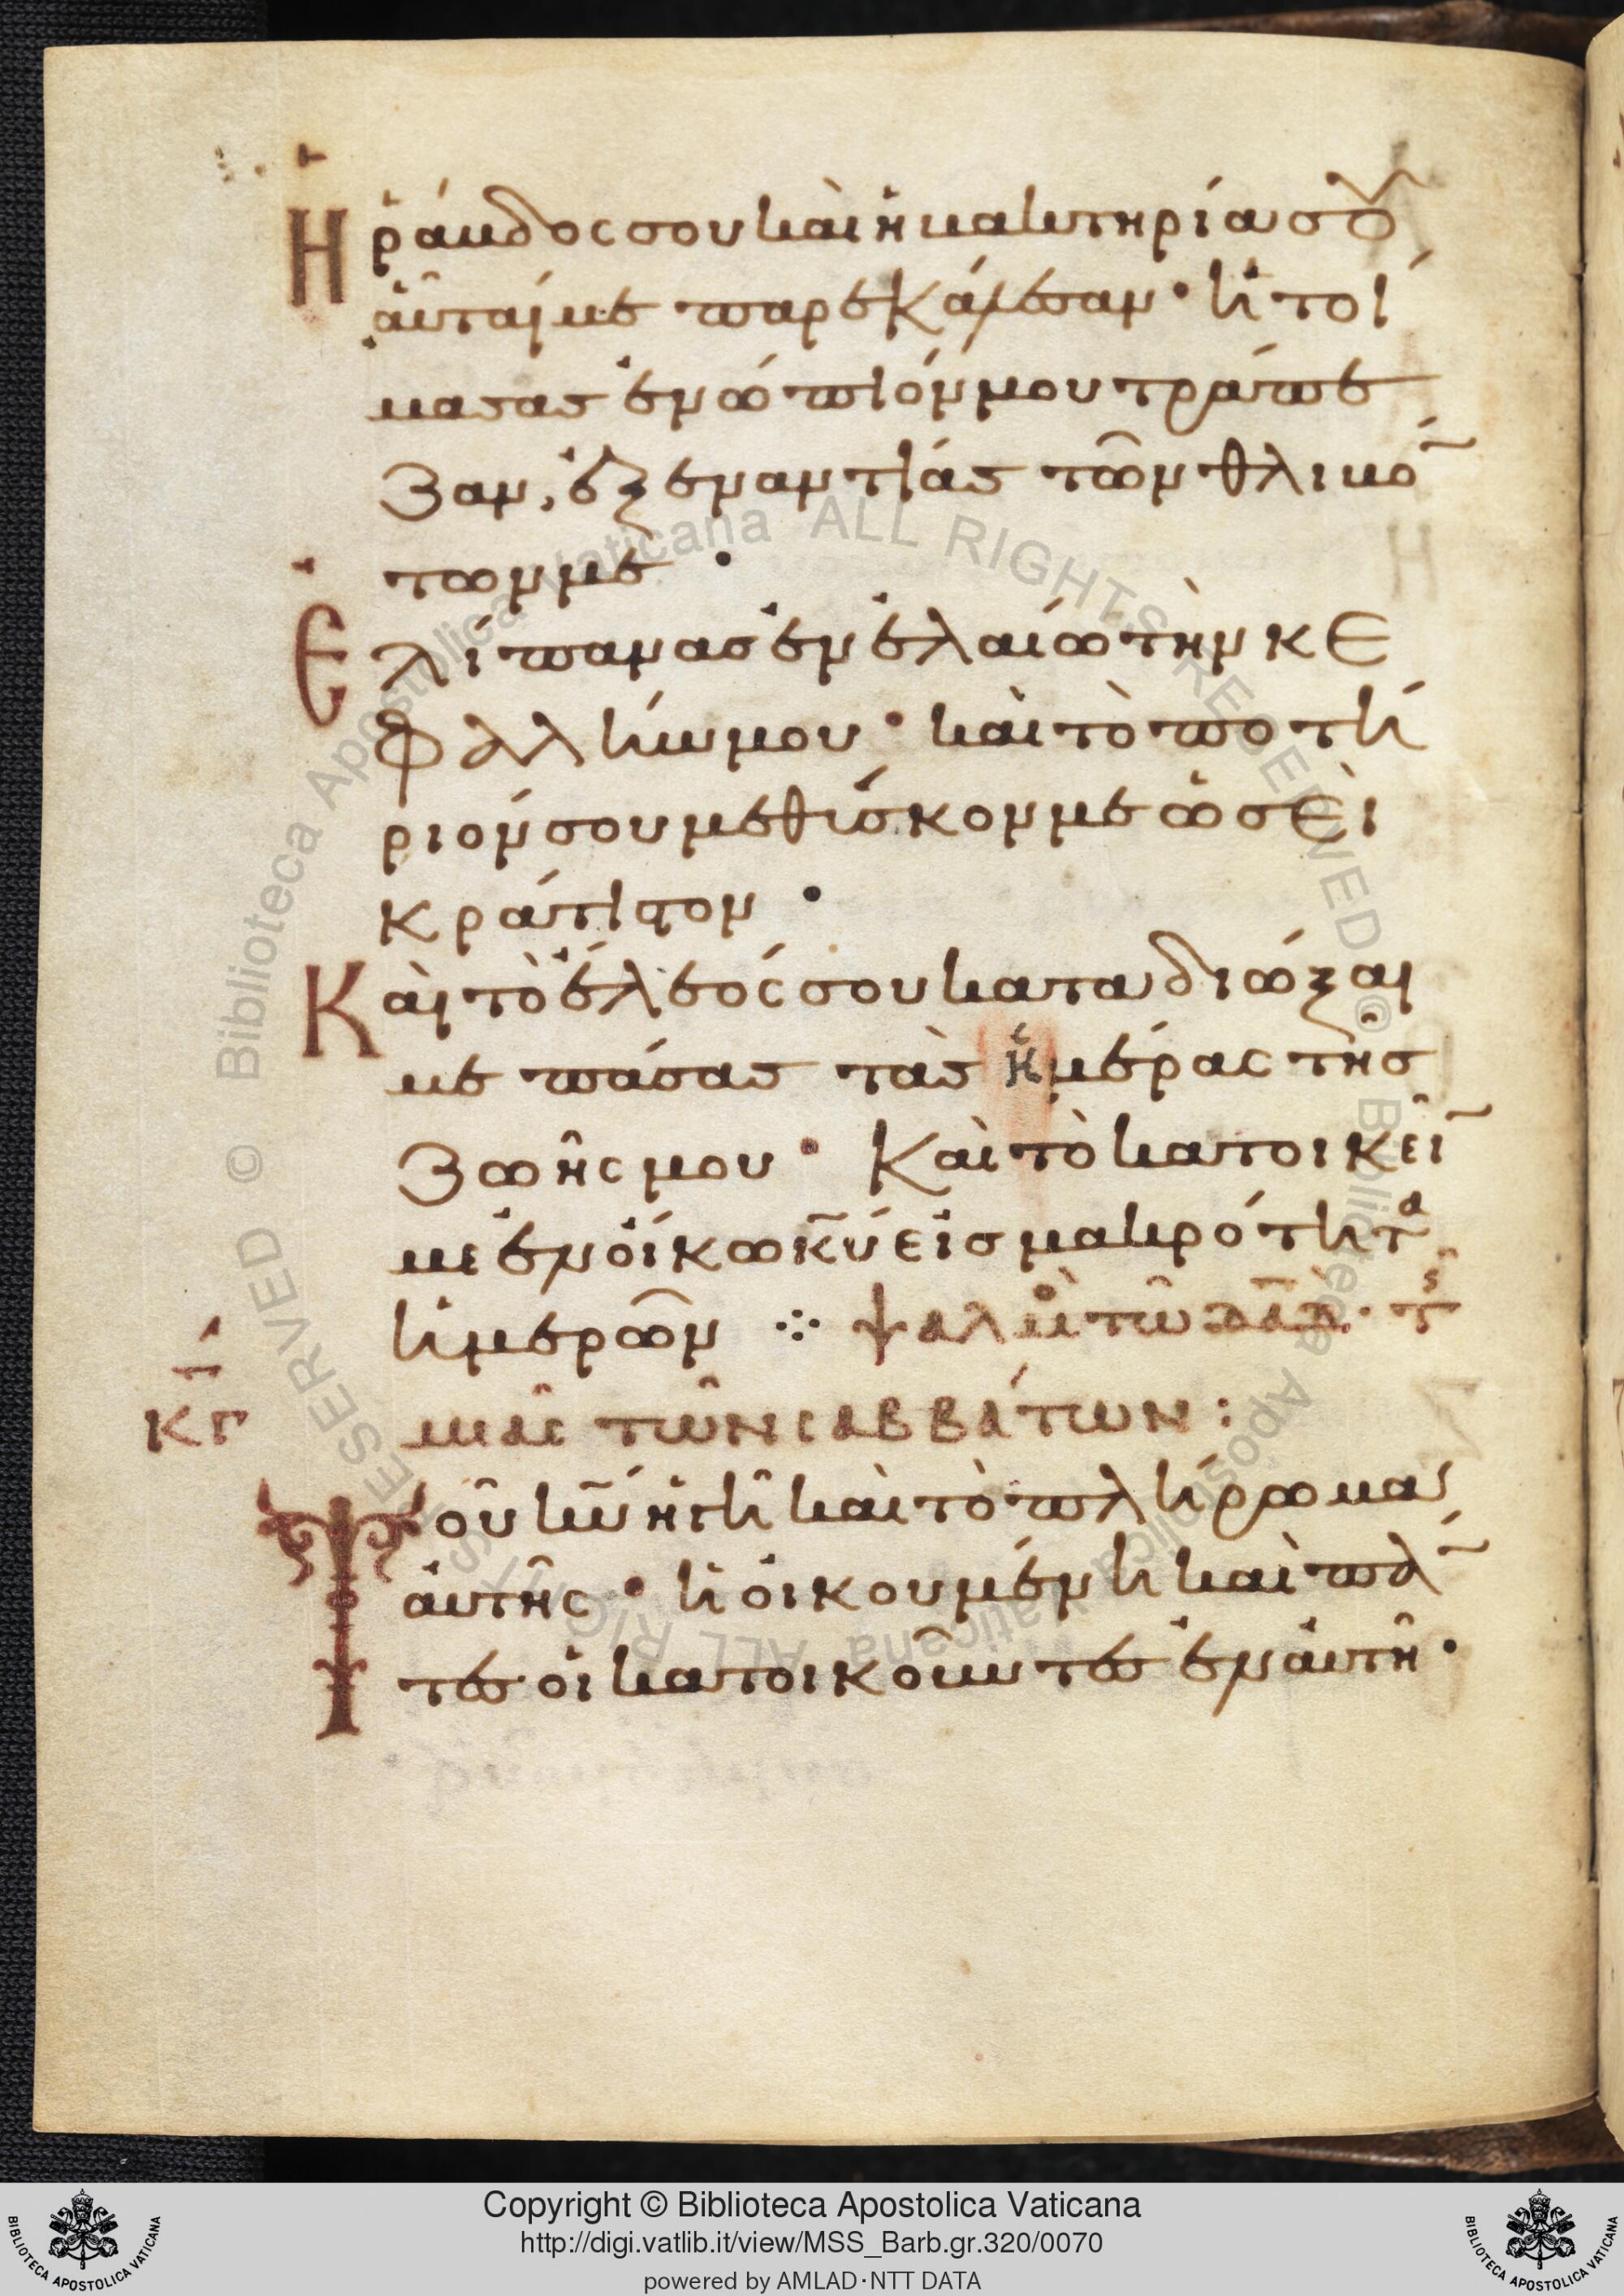 Ἡ ῥάβδος σου καὶ ἡ βακτηρία σου
αὗταί με παρεκάλεσαν· ἡτοί
μασας ἐνώπιόν μου τράπε
ζαν, ἐξεναντίας τῶν θλιβό
των με·
Ἐλίπανας ἐν ἐλαίω τὴν κε
φαλήν μου· καὶ τὸ ποτή
ριόν σου μεθύσκον με ὡσεὶ
κράτιστον·
Καὶ τὸ ἔλεός σου καταδιώξαι
με πάσας τὰς ἡμέρας τῆς
ζωῆς μου· Καὶ τὸ κατοικεῖ
με ἐν οἴκω κ̅υ̅ εἰς μακρότητα
ἡμερῶν ⁘ ψαλμὸ τῶ δα̅δ̅· τῆς
κγ μιᾶς τῶν σαββάτων:
Τοῦ κ̅υ̅ ἡ γῆ καὶ τὸ πλήρωμα
αὐτῆς· ἡ οἰκουμένη καὶ πά
τες οἱ κατοικοῦντες ἐν αὐτῆ·
Copyright © Biblioteca Apostolica Vaticana
http://digi.vatlib.it/view/MSS_Barb.gr.320/0070
powered by AMLAD·NTT DATA
BIBLIOTECA APOSTOLICA VATICANA
BIBLIOTECA APOSTOLICA VATICANA